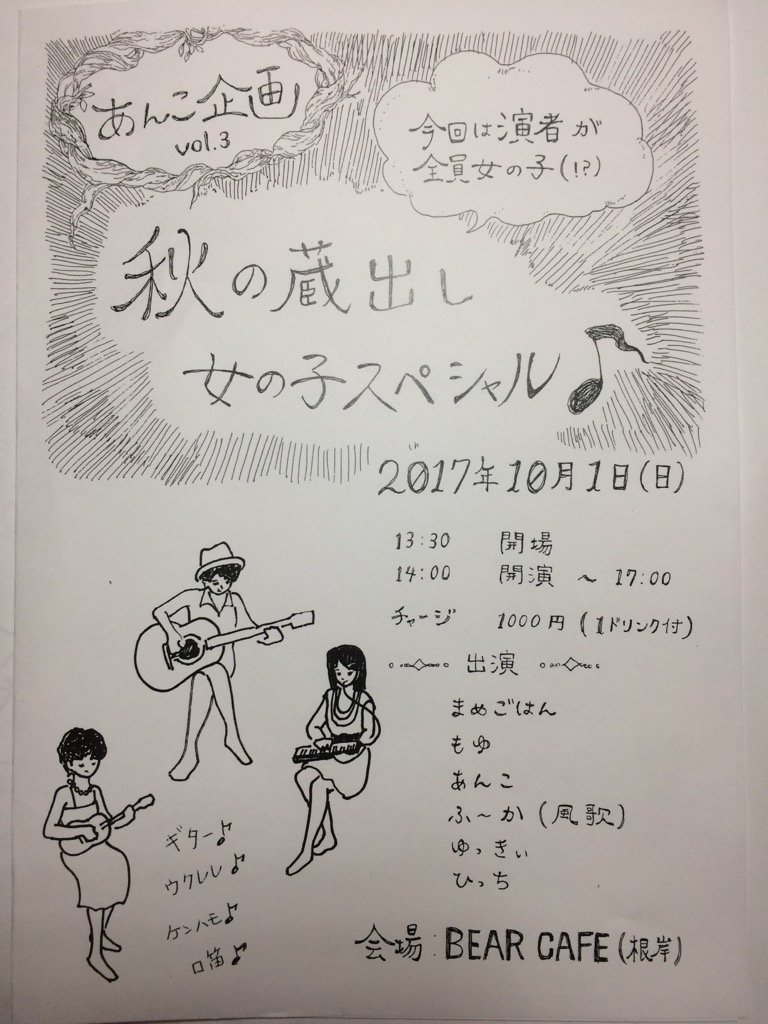 あんこ企画
vol.3
今回は演者が
全員女の子(!?)
秋の蔵出し
女の子スペシャル♪
2017年10月1日(日)
13:30 開場
14:00 開演 ~ 17:00
チャージ 1000円 (1ドリンク付)
出演
まめごはん
もゆ
あんこ
ふ~か (風歌)
ゆっきぃ
ひっち
ギター♪
ウクレレ♪
ケンハモ♪
口笛♪
会場:BEAR CAFE (根岸)